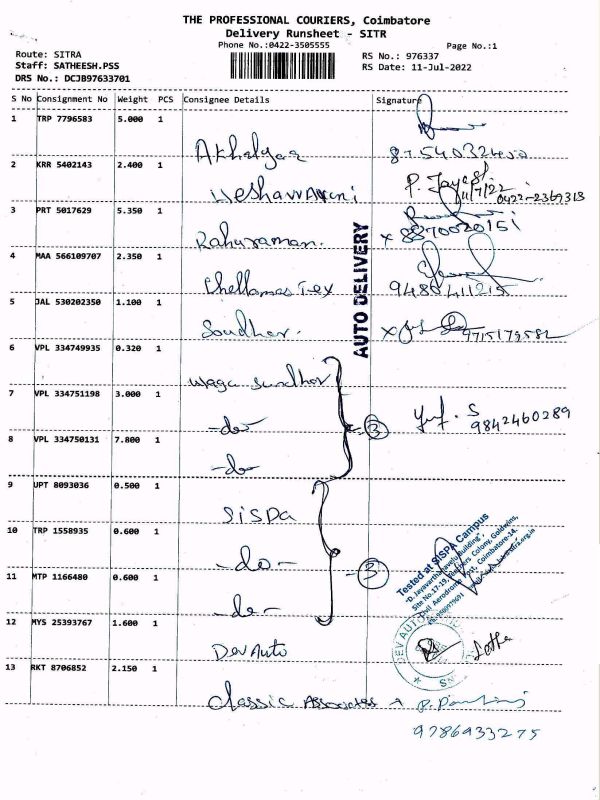 THE PROFESSIONAL COURIERS, Coimbatore
Delivery Runsheet - SITR
Phone No.:0422-3505555
Page No.:1
Route: SITRA
RS No.: 976337
Staff: SATHEESH.PSS
RS Date: 11-Jul-2022
DRS No.: DCJB97633701
S No Consignment No Weight PCS Consignee Details Signature
1 TRP 7796583 5.000 1
2 KRR 5402143 2.400 1
P. Jaya
11/7/22
0422-2369313
3 PRT 5017629 5.350 1
Rahuraman. x 8870020151
4 MAA 566109707 2.350 1
Chellamas Tex 9486411215
5 JAL 530202350 1.100 1
Soudhar. 9715179582
AUTO DELIVERY
6 VPL 334749935 0.320 1
waga sundhar
7 VPL 334751198 3.000 1
-do- 3 S
9842460289
8 VPL 334750131 7.800 1
-do-
9 UPT 8093036 0.500 1
SISPA
10 TRP 1558935 0.600 1
-do-
11 MTP 1166480 0.600 1
-do- 3
Tested at SISPA Campus
Site No.17-19, Colony, Goldwins,
Civil Aerodrome Post, Coimbatore-14.
12 MYS 25393767 1.600 1
Dev Auto
DEV AUTO
13 RKT 8706852 2.150 1
Classic Associates
9786933275